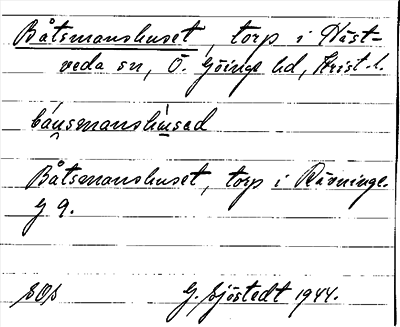 Båtsmanshuset, torp i Häst-
veda sn, Ö. Göinge hd, Krist. l.
bausmanshusad
Båtsmanshuset, torp i Rävninge.
g 9.
SOS G. Sjöstedt 1944.